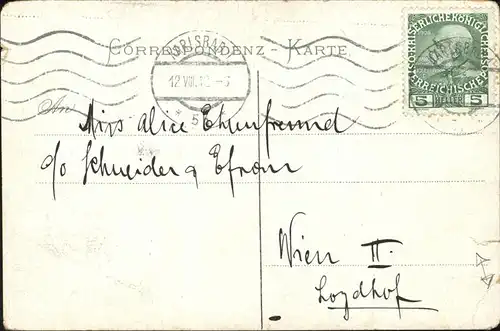 CORRESPONDENZ - KARTE
12 VIII
KAISERLICHE KÖNIGLICHE
ÖSTERREICHISCHE POST
5 HELLER 5
An
Miss Alice Ehrenfreund
c/o Schneider & Efrom
Wien II.
Loydhof